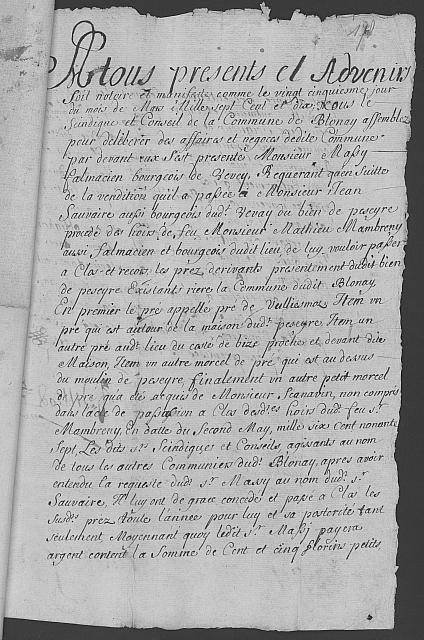 A tous presents et Advenirs
Soit notoire et manifeste comme le vingt cinquiesme jour
du mois de Mars Mille Sept Cent et dix, Nous le
Scindique et Conseil de la Commune de Blonay assemblez
pour deliberer des affaires et negoces dedite Commune
par devant eux s'est presenté Monsieur Massy
falmacien bourgeois de Vevey, Requerant qu'en suitte
de la vendition qu'il a passée à Monsieur Jean
Sauvaire aussi bourgeois dud.t Vevay du bien de peseyre
procede des hoirs de feu Monsieur Mathieu Mambreny
aussi falmacien et bourgeois dudit lieu de luy vouloir passer
a Clos et recors les prez derivants presentement dudit bien
de peseyre Existants riere la Commune dudit Blonay,
En premier le pre appellé pré de Item un
pré qui est autour de la maison dud.t peseyre Item un
autre pré aud.t lieu du costé de bize proche et devant dite
Maison, Item un autre morcel de pré qui est au dessus
du moulin de peseyre, finalement un autre petit morcel
de pre qu'a de acquis de Monsieur non compris
dans lacte de passation a Clos desd.ts hoirs dud.t feu s.r
Mambreny, En datte du Second May, mille six cent nonante
Sept, Les dits s.rs Scindiques et Conseils, agissants au nom
de tous les autres Communiers dud.t Blonay, apres avoir
entendu la requeste dud.t s.r Massy au nom dud.t s.r
Sauvaire, Ils luy ont de grace concede et passé a Clos les
susd.ts prez toute l'année pour luy et sa posterité tant
seulement, Moyennant quoy ledit s.r Massy payera
argent content la Somme de Cent et cinq florins petits,